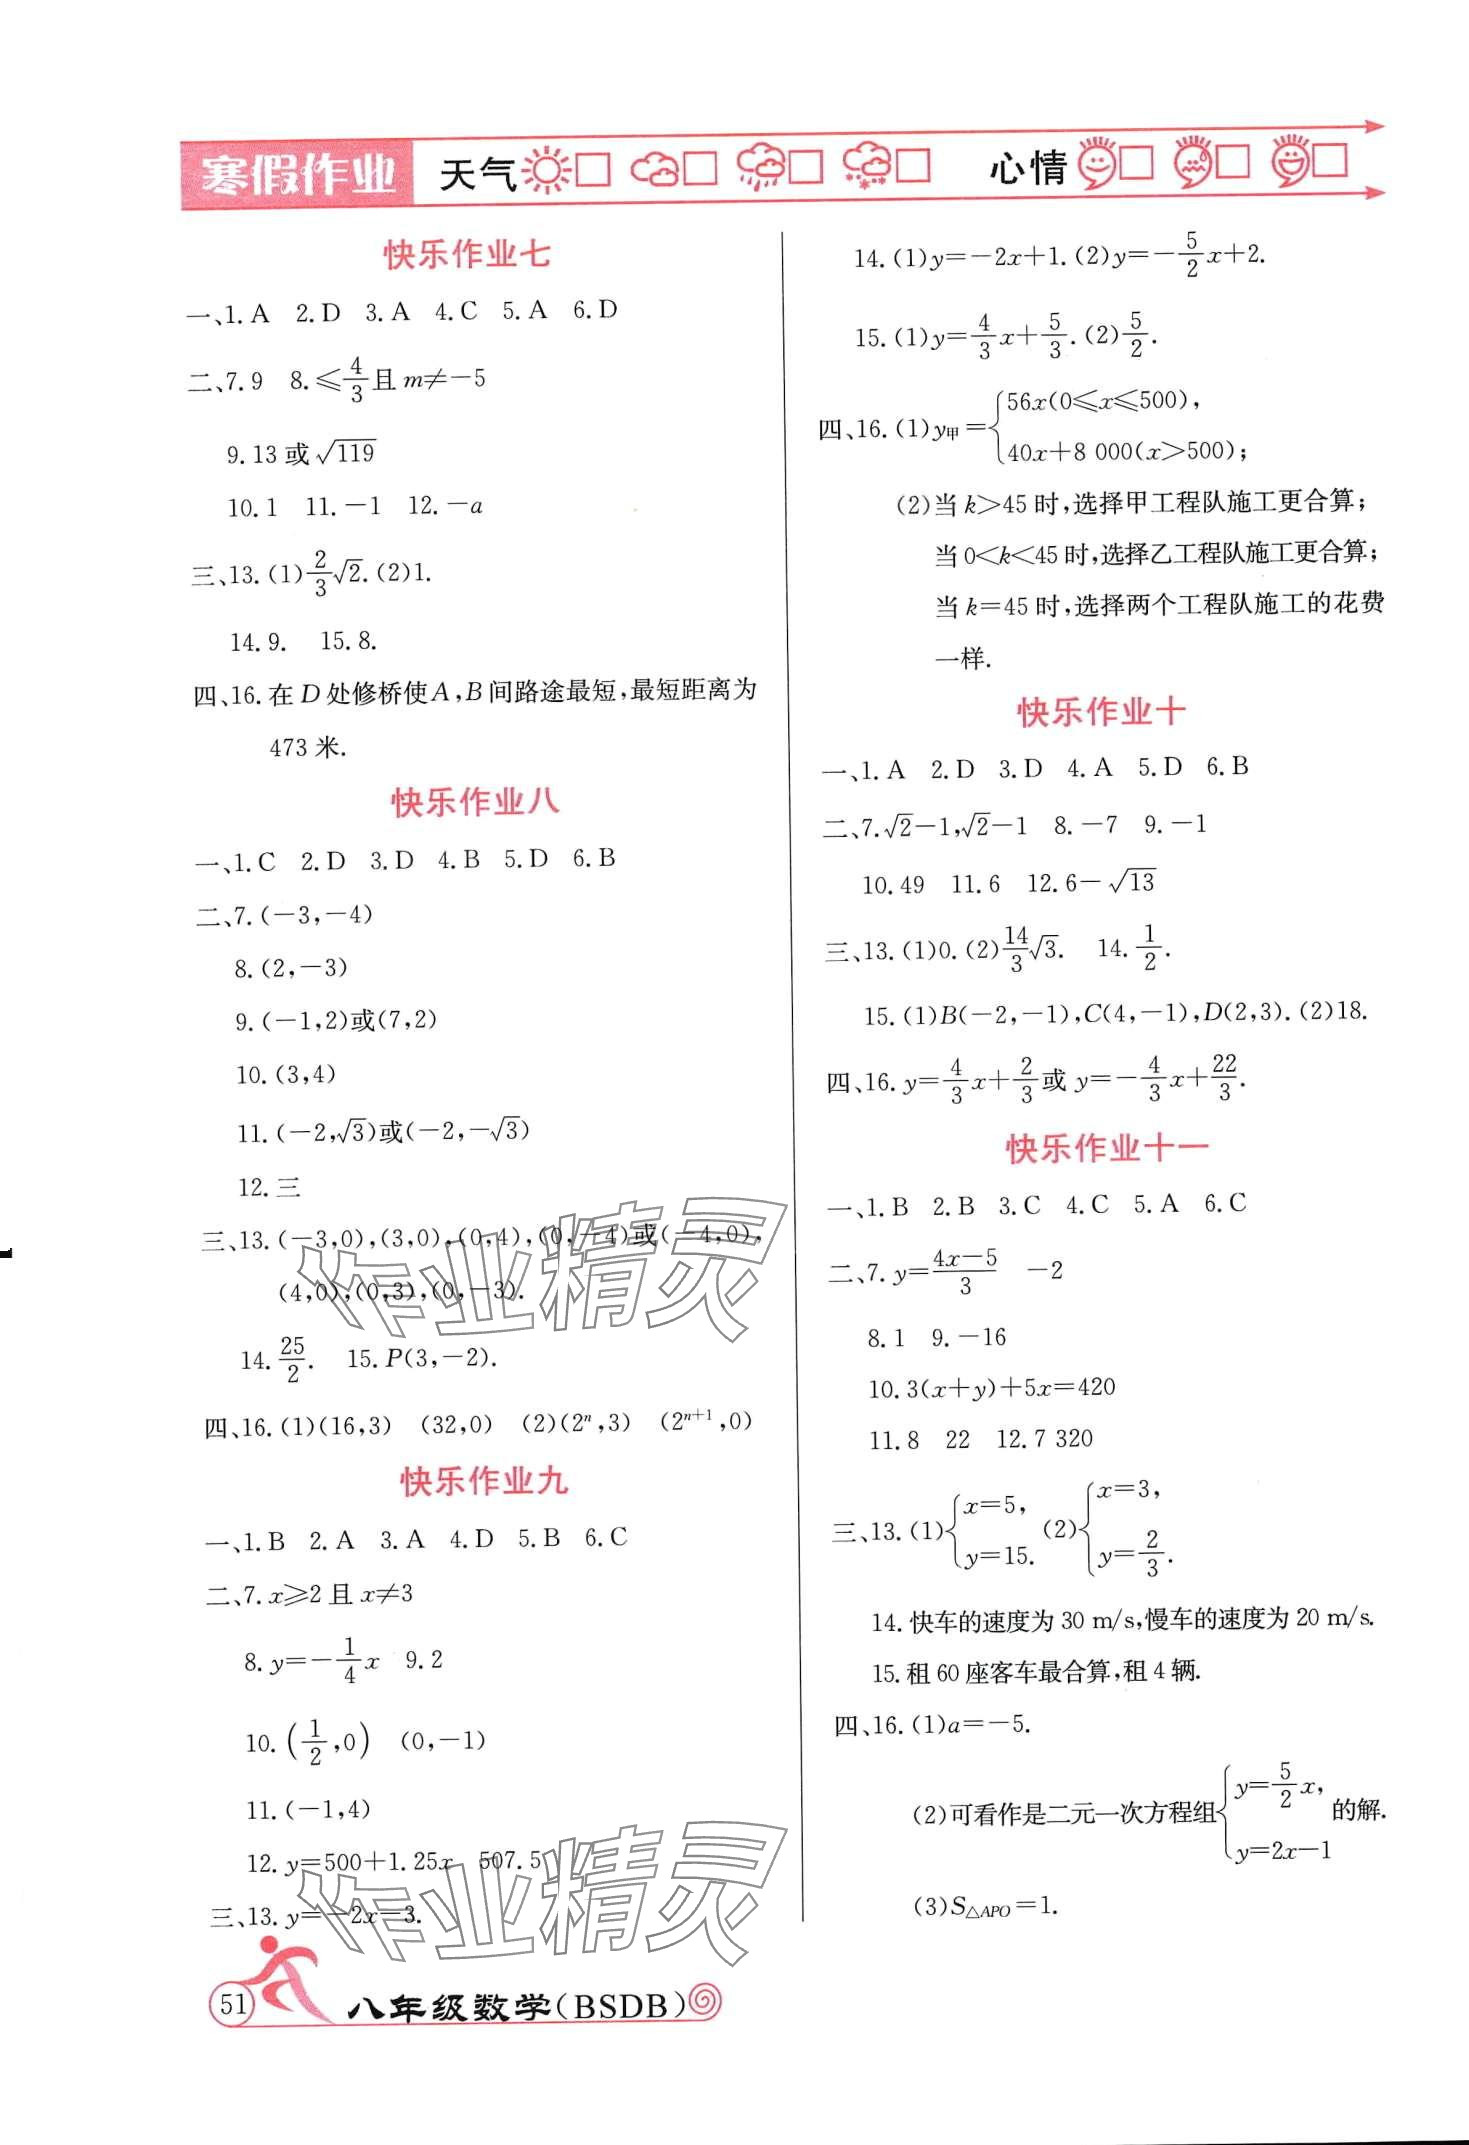 寒假作业 天气 心情
快乐作业七
一、1. A 2. D 3. A 4. C 5. A 6. D
二、7. 9 8. ≤4/3且 m≠−5
9. 13 或 √119
10. 1 11. −1 12. −a
三、13. (1)2/3√2. (2)1.
14. 9. 15. 8.
四、16. 在 D 处修桥使 A,B 间路途最短,最短距离为
473 米.
快乐作业八
一、1. C 2. D 3. D 4. B 5. D 6. B
二、7. (−3,−4)
8. (2,−3)
9. (−1,2)或(7,2)
10. (3,4)
11. (−2,√3)或(−2,−√3)
12. 三
三、13. (−3,0),(3,0),(0,4),(0,−4)或(−4,0),
(4,0),(0,3),(0,−3).
14. 25/2. 15. P(3,−2).
四、16. (1)(16,3) (32,0) (2)(2ⁿ,3) (2ⁿ⁺¹,0)
快乐作业九
一、1. B 2. A 3. A 4. D 5. B 6. C
二、7. x≥2 且 x≠3
8. y=−1/4x 9. 2
10. (1/2,0) (0,−1)
11. (−1,4)
12. y=500+1.25x 507.5
三、13. y=−2x−3.
14. (1)y=−2x+1. (2)y=−5/2x+2.
15. (1)y=4/3x+5/3. (2)5/2.
四、16. (1)y甲={56x(0≤x≤500),
40x+8 000(x>500);
(2)当 k>45 时,选择甲工程队施工更合算;
当 0<k<45 时,选择乙工程队施工更合算;
当 k=45 时,选择两个工程队施工的花费
一样.
快乐作业十
一、1. A 2. D 3. D 4. A 5. D 6. B
二、7. √2−1,√2−1 8. −7 9. −1
10. 49 11. 6 12. 6−√13
三、13. (1)0. (2)14/3√3. 14. 1/2.
15. (1)B(−2,−1),C(4,−1),D(2,3). (2)18.
四、16. y=4/3x+2/3或 y=−4/3x+22/3.
快乐作业十一
一、1. B 2. B 3. C 4. C 5. A 6. C
二、7. y=(4x−5)/3 −2
8. 1 9. −16
10. 3(x+y)+5x=420
11. 8 22 12. 7 320
三、13. (1){x=5, y=15. (2){x=3, y=2/3.
14. 快车的速度为 30 m/s,慢车的速度为 20 m/s.
15. 租 60 座客车最合算,租 4 辆.
四、16. (1)a=−5.
(2)可看作是二元一次方程组{y=5/2x, y=2x−1 的解.
(3)S△APO=1.
51 八年级数学(BSDB)
作业精灵
作业精灵